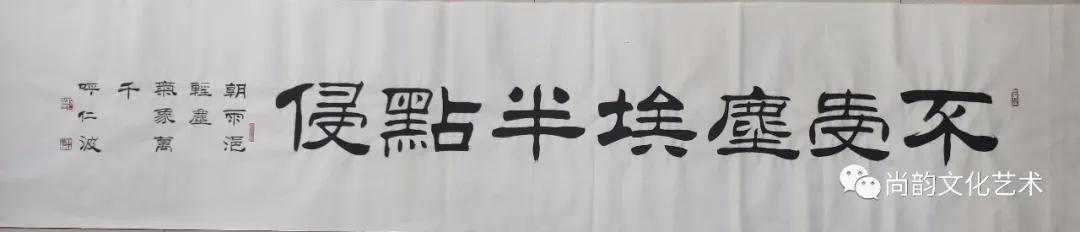 不受塵埃半點侵
朝雨浥
輕塵
氣象萬
千
呼仁波
尚韵文化艺术